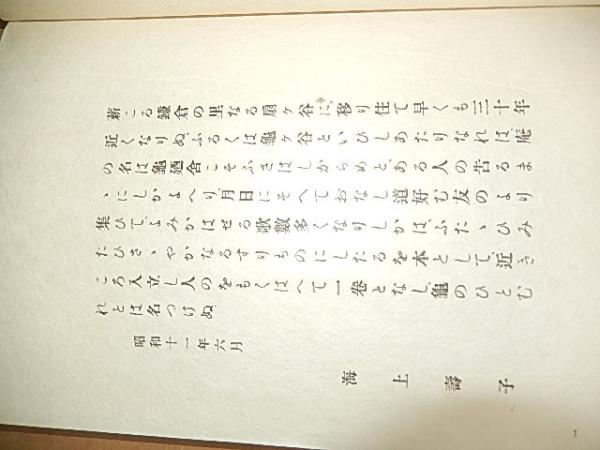 薪こる鎌倉の里なる扇ヶ谷に、移り住て早くも三十年
近くなりぬ、ふるくは龜ヶ谷といひしあたりなれは、庵
の名は龜廼舍こそふさはしからめと、ある人の告るま
ゝにしかよへり、月日にそへておなし道好む友のより
集ひて、よみかはせる歌數多くなりしかは、ふたゝひみ
たひさゝやかなるすりものにしたるを本として、近き
ころ入立し人のをもくはへて一卷となし、龜のひとむ
れとは名つけぬ、
昭和十一年六月
海上壽子